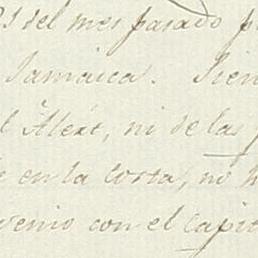 del mes pasado p
Jamaica. Sien
l Alext, ni de las
en la costa, no h
venio con el capit